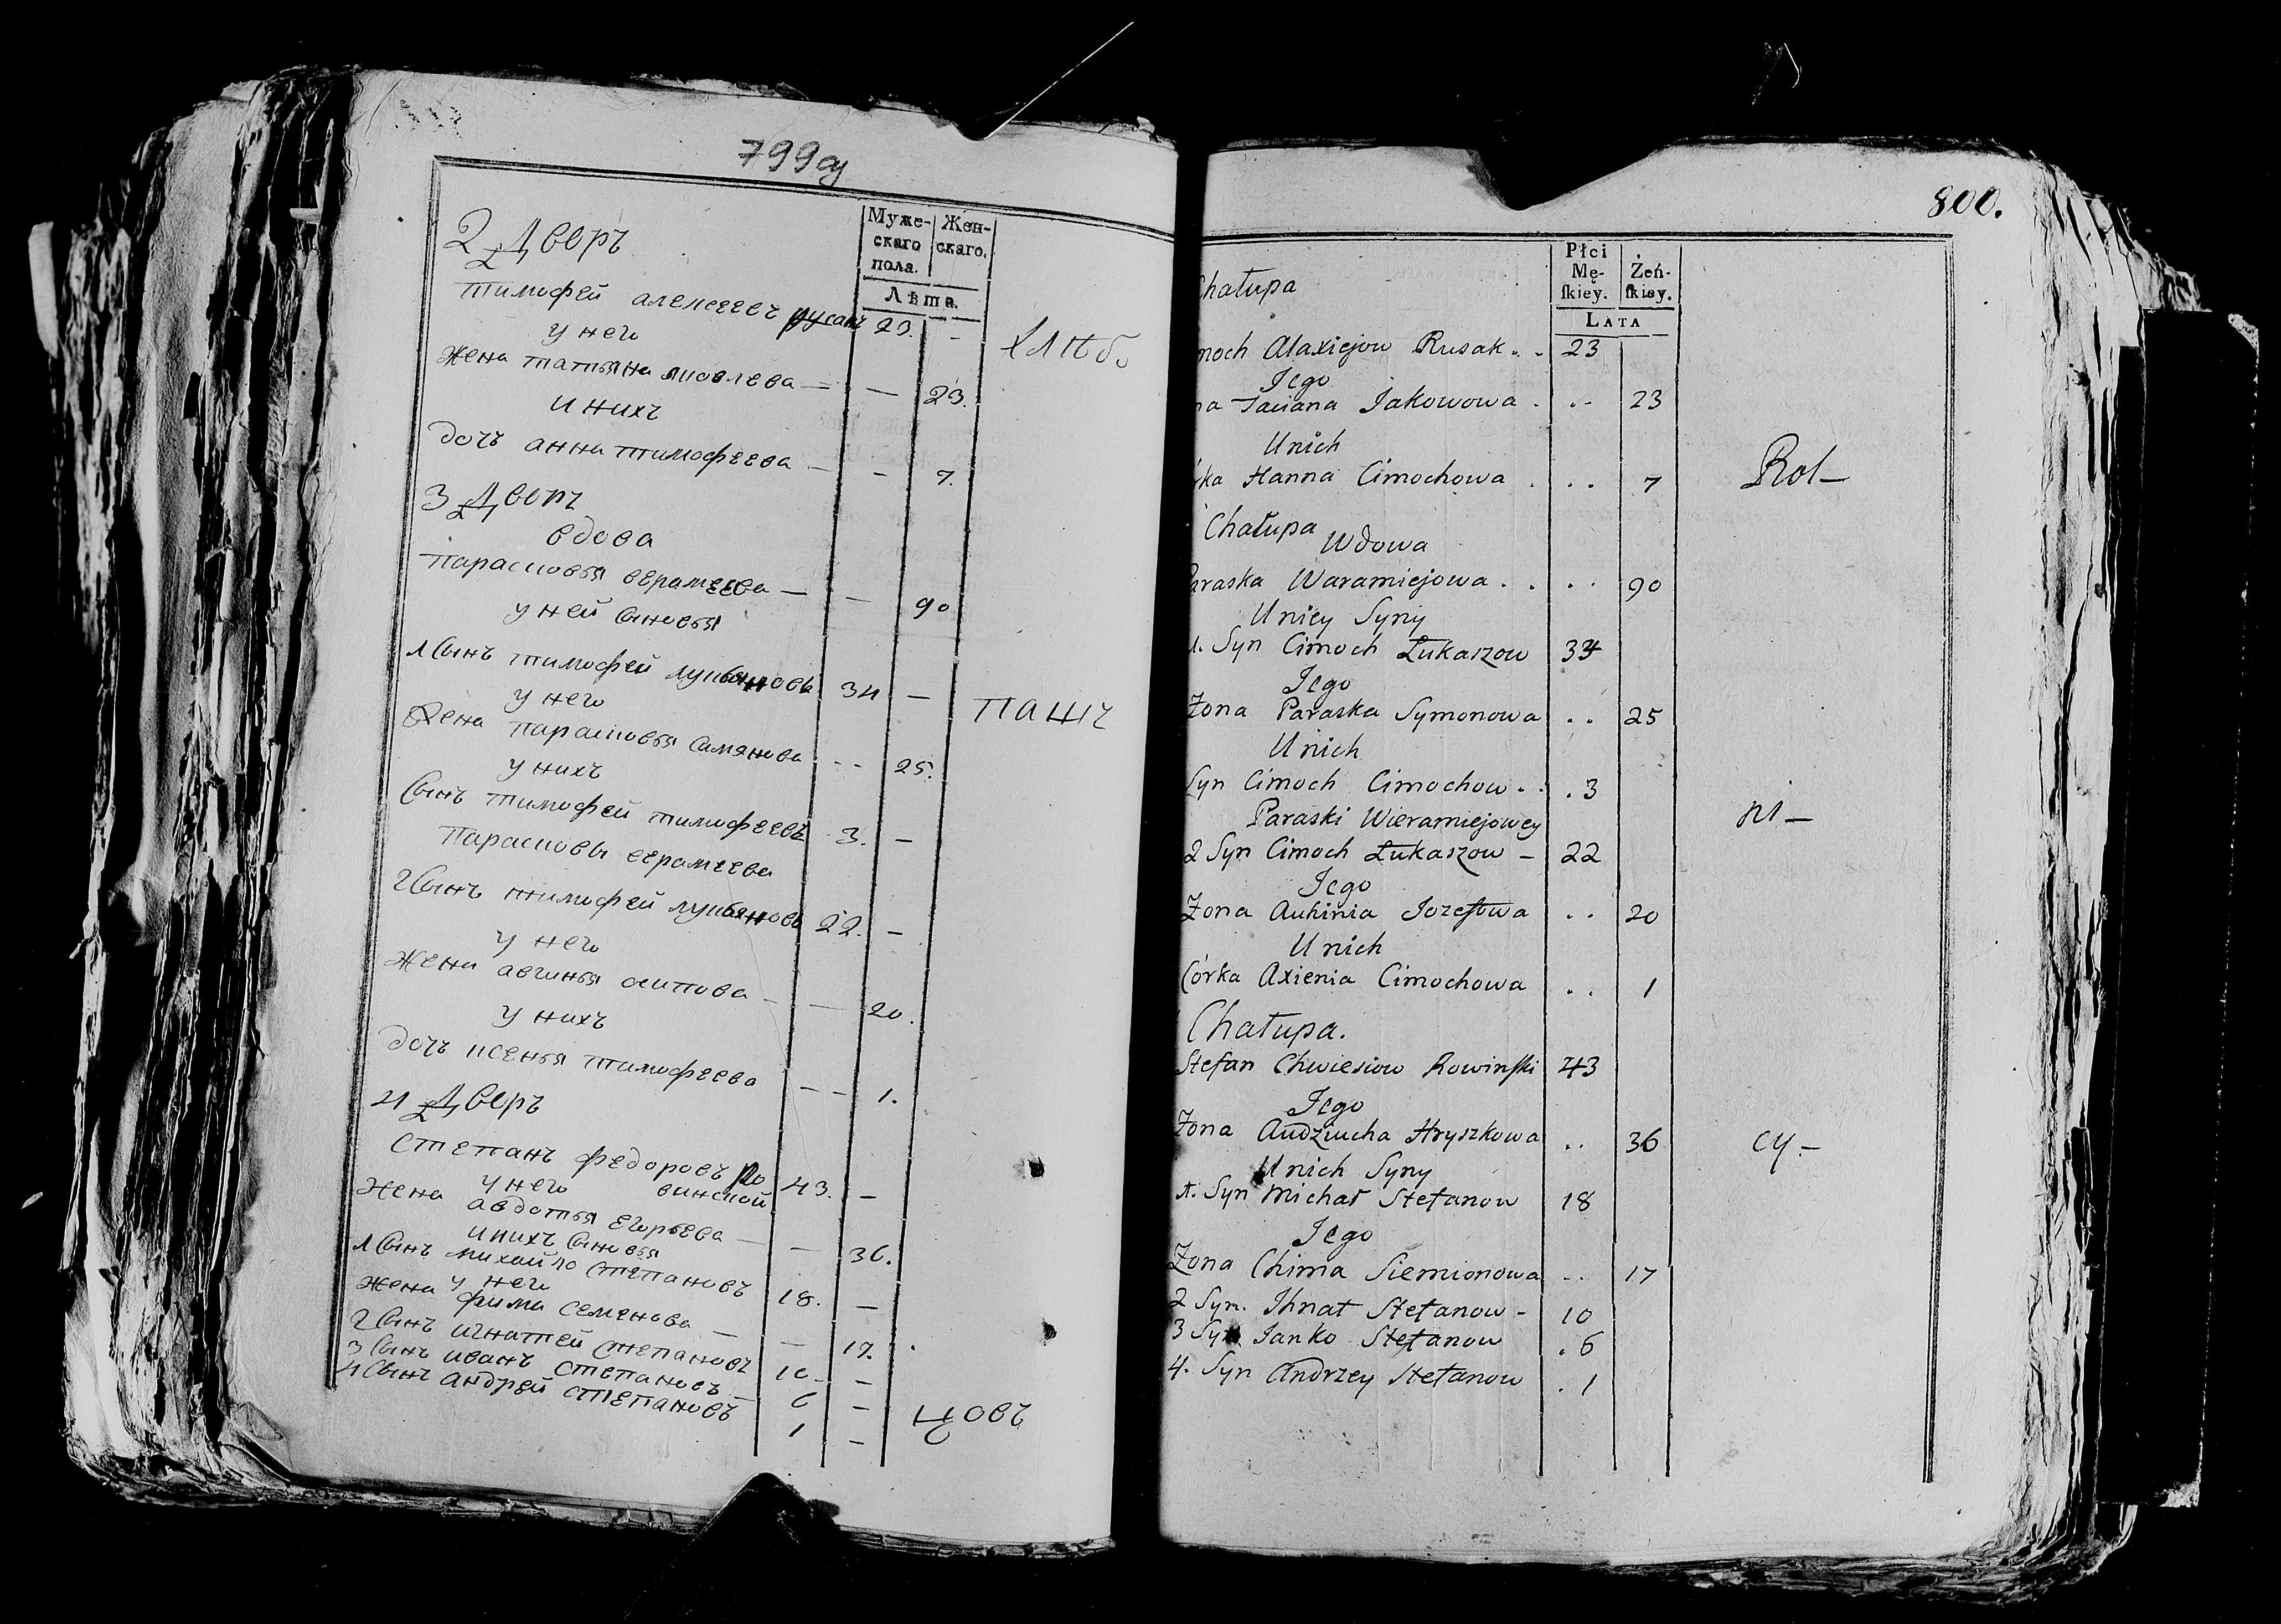 799об
Муже-
скаго
пола.
Жен-
скаго.
Лѣта.
2 Дворъ
тимофей алексеевъ русакъ 23. -
у него
жена татьяна яковлева — — 23.
у нихъ
дочь анна тимофеева — - 7.
3 Дворъ
вдова
парасковья верамеева — — 90
у ней сыновья
1 сынъ тимофей лукьяновъ 34 —
у него
жена парасковья самянова -- 25.
у нихъ
сынъ тимофей тимофеевъ 3. —
парасковьи верамеева
2 сынъ тимофей лукьяновъ 22. —
у него
жена авгинья осипова — — 20.
у нихъ
дочь ксенья тимофеева -- 1.
4 Дворъ
степанъ федоровъ ро 43. —
у него винской
жена авдотья егорьева — — 36.
у нихъ сыновья
1 сынъ михайло степановъ 18. —
у него
жена фима семенова — — 17.
2 сынъ игнатей степановъ 10. —
3 сынъ иванъ степановъ — 6 —
4 сынъ андрей степановъ 1 —
хлѣбо
пашъ
цовъ
800.
Płci
Mę-
skiey.
Żeń-
skiey.
LATA
Chałupa
moch Alaxiejow Rusak . . 23
Jego
na Taciana Jakowowa . .. 23
Unich
rka Hanna Cimochowa . .. 7
Chałupa
Wdowa
araska Waramiejowa . . .. 90
Uniey Syny
1. Syn Cimoch Łukaszow 34
Jego
Żona Paraska Symonowa .. 25
Unich
Syn Cimoch Cimochow . . . 3
Paraski Wieramiejowey
2 Syn Cimoch Łukaszow — 22
Jego
Żona Auhinia Jozefowa .. 20
Unich
Córka Axienia Cimochowa .. 1
Chałupa.
Stefan Chwiesiow Rowinski 43
Jego
Żona Audziucha Hryszkowa .. 36
Unich Syny
1. Syn Michał Stefanow 18
Jego
Żona Chima Siemionowa .. 17
2 Syn. Ihnat Stefanow - 10
3 Syn Janko Stefanow . 6
4. Syn Andrzey Stefanow . 1
Rol—
ni—
cy.—